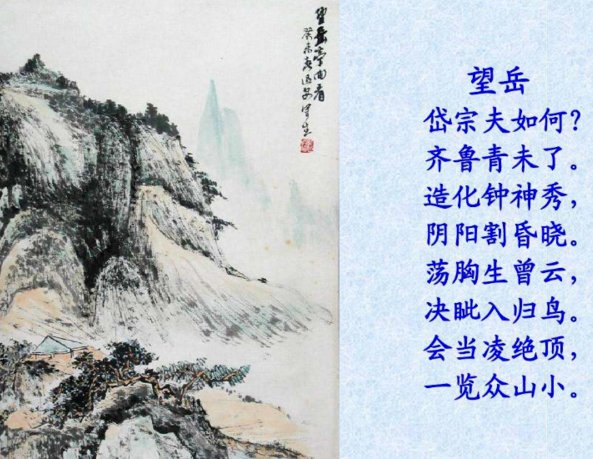 望岳
岱宗夫如何？
齐鲁青未了。
造化钟神秀，
阴阳割昏晓。
荡胸生曾云，
决眦入归鸟。
会当凌绝顶，
一览众山小。